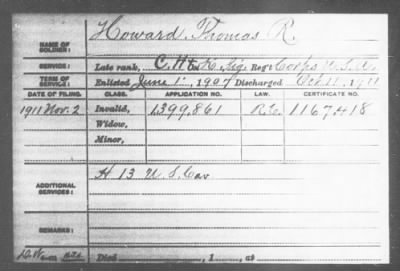 Howard, Thomas R.
NAME OF SOLDIER:
SERVICE: Late rank, Sig. Reg't Corps U.S.A.
TERM OF SERVICE: Enlisted June 1, 1907 Discharged Oct 11, 1911
DATE OF FILING. CLASS. APPLICATION NO. LAW. CERTIFICATE NO.
1911 Nov. 2 Invalid, 1,399,861 1167418
Widow,
Minor,
ADDITIONAL SERVICES: H 13 U.S. Cav
REMARKS:
Died , 1 , at